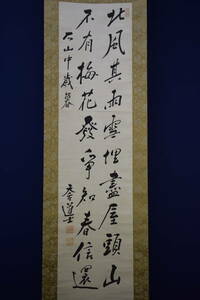 北風其雨雪埋盡屋頭山
不有梅花發爭知春信還
山中歲暮